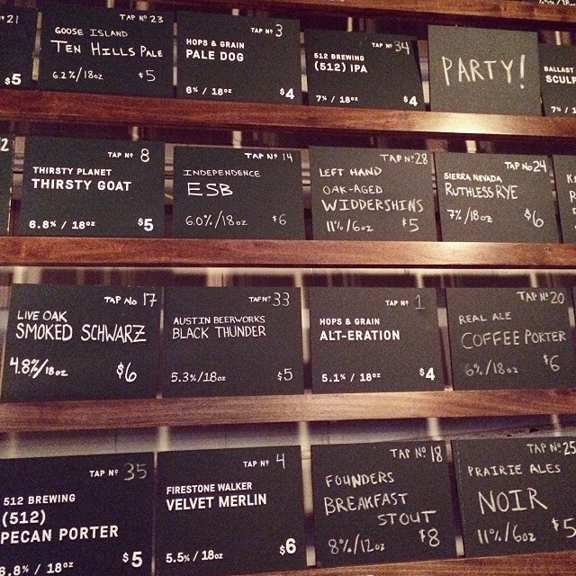 21
$5
TAP Nº 23
GOOSE ISLAND
TEN HILLS PALE
6.2%/18oz $5
TAP Nº 3
HOPS & GRAIN
PALE DOG
6% / 18oz $4
TAP Nº 34
512 BREWING
(512) IPA
7% / 18oz $4
PARTY!
BALLAST
SCULP
7% / 1
2
TAP Nº 8
THIRSTY PLANET
THIRSTY GOAT
6.8% / 18oz $5
TAP Nº 14
INDEPENDENCE
ESB
6.0%/18oz $6
TAP Nº 28
LEFT HAND
OAK-AGED
WIDDERSHINS
11%/6oz $5
TAP No 24
SIERRA NEVADA
RUTHLESS RYE
7%/18oz $6
TAP No 17
LIVE OAK
SMOKED SCHWARZ
4.8%/18oz $6
TAP Nº 33
AUSTIN BEERWORKS
BLACK THUNDER
5.3%/18oz $5
TAP Nº 1
HOPS & GRAIN
ALT-ERATION
5.1% / 18oz $4
TAP Nº 20
REAL ALE
COFFEE PORTER
6%/18oz $6
TAP Nº 35
512 BREWING
(512)
PECAN PORTER
6.8% / 18oz $5
TAP Nº 4
FIRESTONE WALKER
VELVET MERLIN
5.5% / 18oz $6
TAP Nº 18
FOUNDERS
BREAKFAST
STOUT
8%/12oz $8
TAP Nº 25
PRAIRIE ALES
NOIR
11%/6oz $5